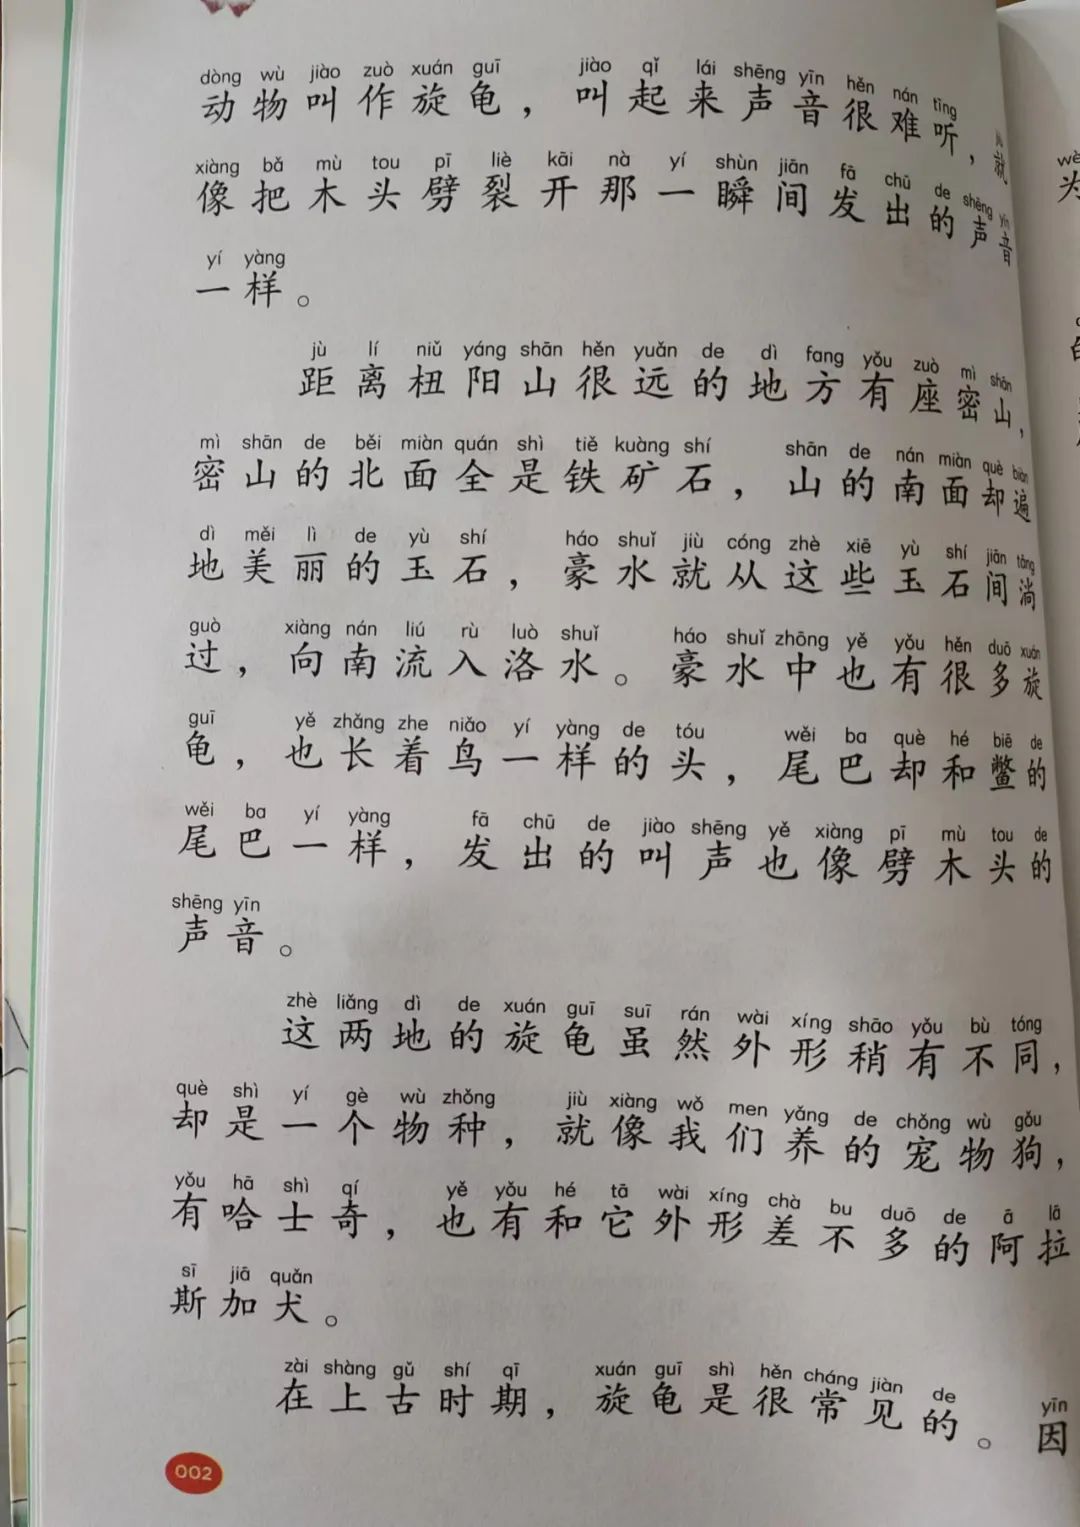 dòng wù jiào zuò xuán guī jiào qǐ lái shēng yīn hěn nán tīng
动物叫作旋龟，叫起来声音很难听，就
xiàng bǎ mù tou pī liè kāi nà yí shùn jiān fā chū de shēng yīn
像把木头劈裂开那一瞬间发出的声音
yí yàng
一样。
jù lí niǔ yáng shān hěn yuǎn de dì fang yǒu zuò mì shān
距离杻阳山很远的地方有座密山，
mì shān de běi miàn quán shì tiě kuàng shí shān de nán miàn què biàn
密山的北面全是铁矿石，山的南面却遍
dì měi lì de yù shí háo shuǐ jiù cóng zhè xiē yù shí jiān tǎng
地美丽的玉石，豪水就从这些玉石间淌
guò xiàng nán liú rù luò shuǐ háo shuǐ zhōng yě yǒu hěn duō xuán
过，向南流入洛水。豪水中也有很多旋
guī yě zhǎng zhe niǎo yí yàng de tóu wěi ba què hé biē de
龟，也长着鸟一样的头，尾巴却和鳖的
wěi ba yí yàng fā chū de jiào shēng yě xiàng pī mù tou de
尾巴一样，发出的叫声也像劈木头的
shēng yīn
声音。
zhè liǎng dì de xuán guī suī rán wài xíng shāo yǒu bù tóng
这两地的旋龟虽然外形稍有不同，
què shì yí gè wù zhǒng jiù xiàng wǒ men yǎng de chǒng wù gǒu
却是一个物种，就像我们养的宠物狗，
yǒu hā shì qí yě yǒu hé tā wài xíng chà bu duō de ā lā
有哈士奇，也有和它外形差不多的阿拉
sī jiā quǎn
斯加犬。
zài shàng gǔ shí qī xuán guī shì hěn cháng jiàn de yīn
在上古时期，旋龟是很常见的。因
002
wè
为